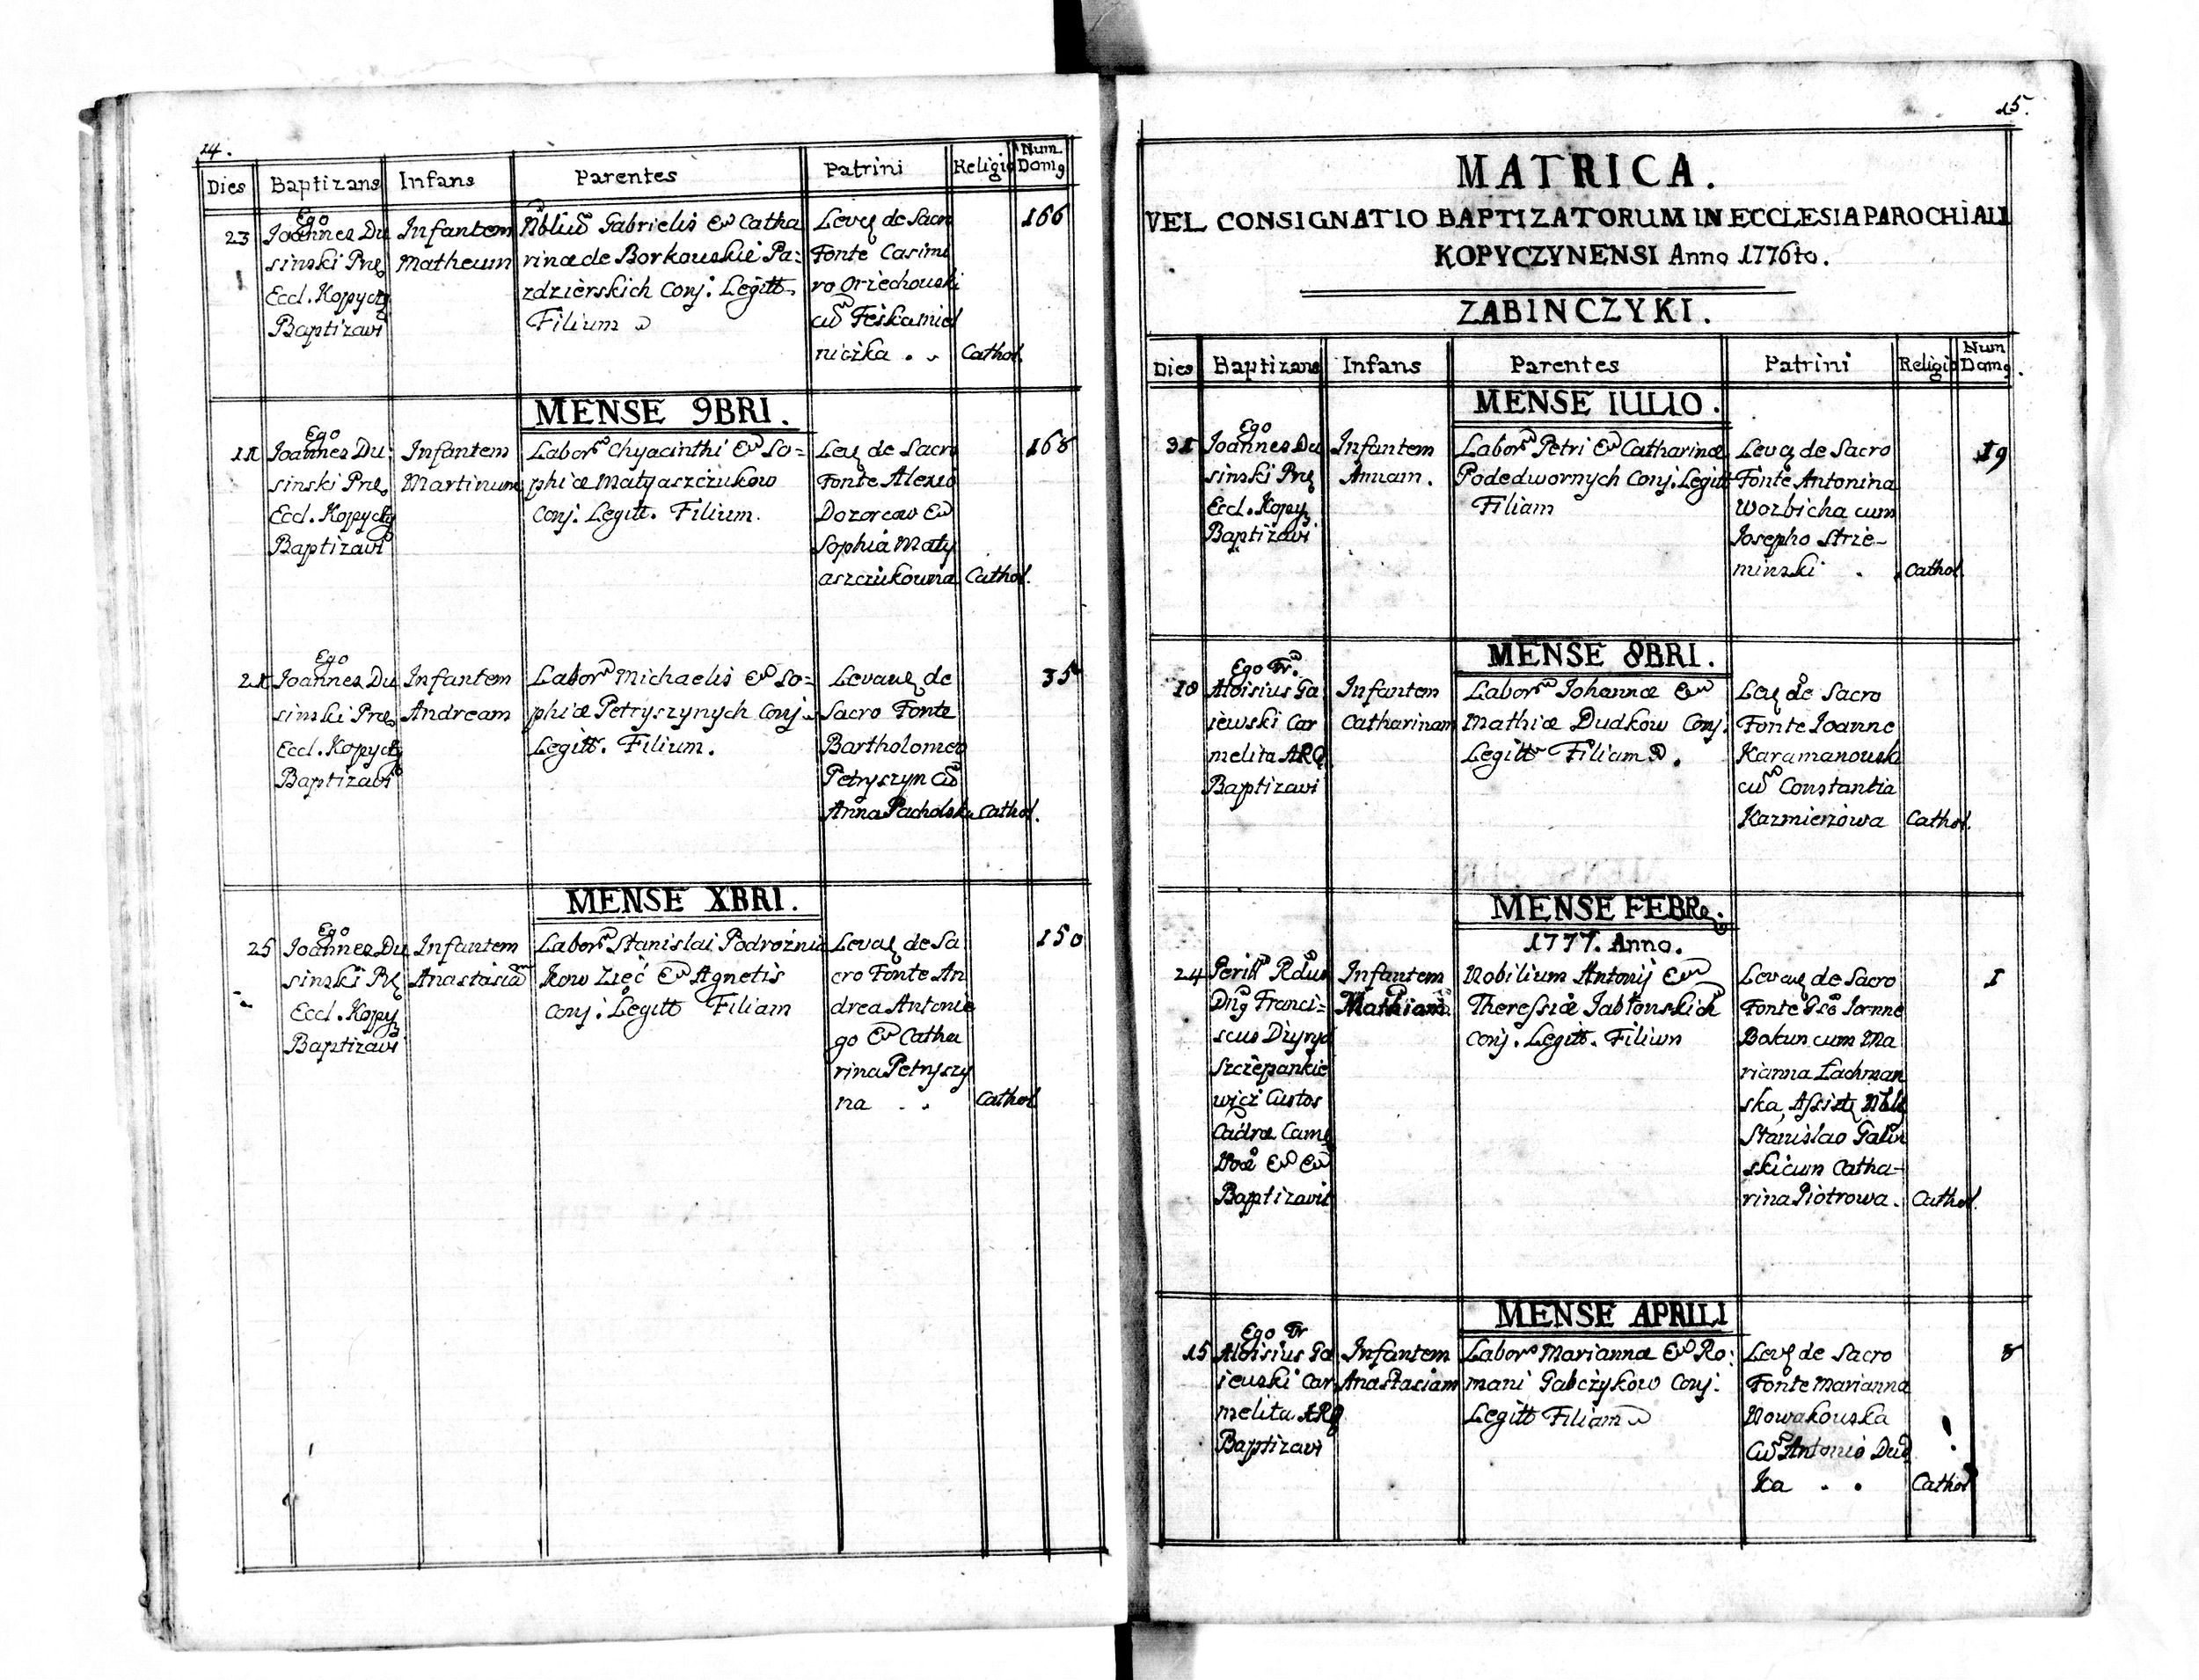 14.
Dies Baptizans Infans Parentes Patrini Religio Num Domq
23
Ego
Joannes Du
sinski Preq
Eccl. Kopycz
Baptizavi
Infantem
Matheum
Gabrielis Et Catha
rinæ de Borkouskie Pa:
zdzierskich Conj. Legitt.
Filium
Levq de Sacro
Fonte Casimi
ro Orzechouski
cum Feskamiel
niczka . .
Cathol.
166
MENSE 9BRI.
11
Ego
Joannes Du:
sinski Preq
Eccl. Kopycz
Baptizavi
Infantem
Martinum
Labor Chyacinthi Et So=
phiæ Matyaszczukow
Conj. Legitt. Filium.
Leq de Sacro
Fonte Alexio
Dozorcow Et
Sophia Maty
aszczukowna
Cathol.
168
21
Ego
Joannes Du
sinski Preq
Eccl. Kopycz
Baptizavi
Infantem
Andream
Labor Michaelis Et So=
phiæ Petryszynych Conj
Legitt. Filium.
Levaveq de
Sacro Fonte
Bartholomeo
Petryszyn cum
Anna Pacholska
Cathol.
35
MENSE XBRI.
25
Ego
Joannes Du
sinski Pq
Eccl. Kopy
Baptizavi
Infantem
Anastasiã
Labor Stanislai Podrożnia
kow Zięć Et Agnetis
Conj. Legitt Filiam
Levaq de Sa
cro Fonte An
drea Antonie
go Et Catha
rina Petryszy
na . .
Cathol
150
15.
MATRICA.
VEL CONSIGNATIO BAPTIZATORUM IN ECCLESIA PAROCHiALI
KOPYCZYNENSI Anno 1776to.
ZABINCZYKI.
Dies Baptizans Infans Parentes Patrini Religio Num Domq.
MENSE IULIO.
31
Ego
Joannes Du
sinski Prq
Eccl. Kopy
Baptizavi
Infantem
Annam.
Labor Petri Et Catharinæ
Podedwornych Conj. Legitt
Filiam
Levq de Sacro
Fonte Antonina
Wozbicha cum
Josepho Strze-
minski .
Cathol
19
MENSE 8BRI.
18
Ego Fr.
Aloisius Ga
jewski Car
melita ARQ
Baptizavi
Infantem
Catharinam
Labor Johannæ Et
Mathiæ Dudkow Conj.
Legitt Filiam .
Leq de Sacro
Fonte Joanne
Karamanouski
cum Constantia
Kazmierzowa
Cathol.
MENSE FEBRq.
1777. Anno.
24
Perill Rdus
Dnq Franci=
scus Dizyryd
Szczepankie
wicz Custos
Cadræ Camq
Et Et
Baptizavit
Infantem
Mathiam
Nobilium Antonij Et
Theressiæ Jabłonskich
Conj. Legitt. Filium
Levaq de Sacro
Fonte Gso Joanne
Bakun cum Ma
rianna Lachman
ska, Assistq Nblq
Stanislao Galin
ski cum Catha-
rina Piotrowa.
Cathol.
1
MENSE APRILI
15
Ego Fr
Aloisius Ga
jeuski Car
melita ARQ
Baptizavi
Infantem
Anastasiam
Labor Mariannæ Et Ro:
mani Gabczykow Conj.
Legitt Filiam
Levq de Sacro
Fonte Marianna
Nowakouska
cum Antonio Dud
ka . .
Cathol
8